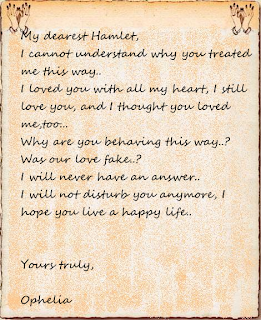 My dearest Hamlet,
I cannot understand why you treated
me this way..
I loved you with all my heart, I still
love you, and I thought you loved
me,too...
Why are you behaving this way..?
Was our love fake..?
I will never have an answer..
I will not disturb you anymore, I
hope you live a happy life..
Yours truly,
Ophelia